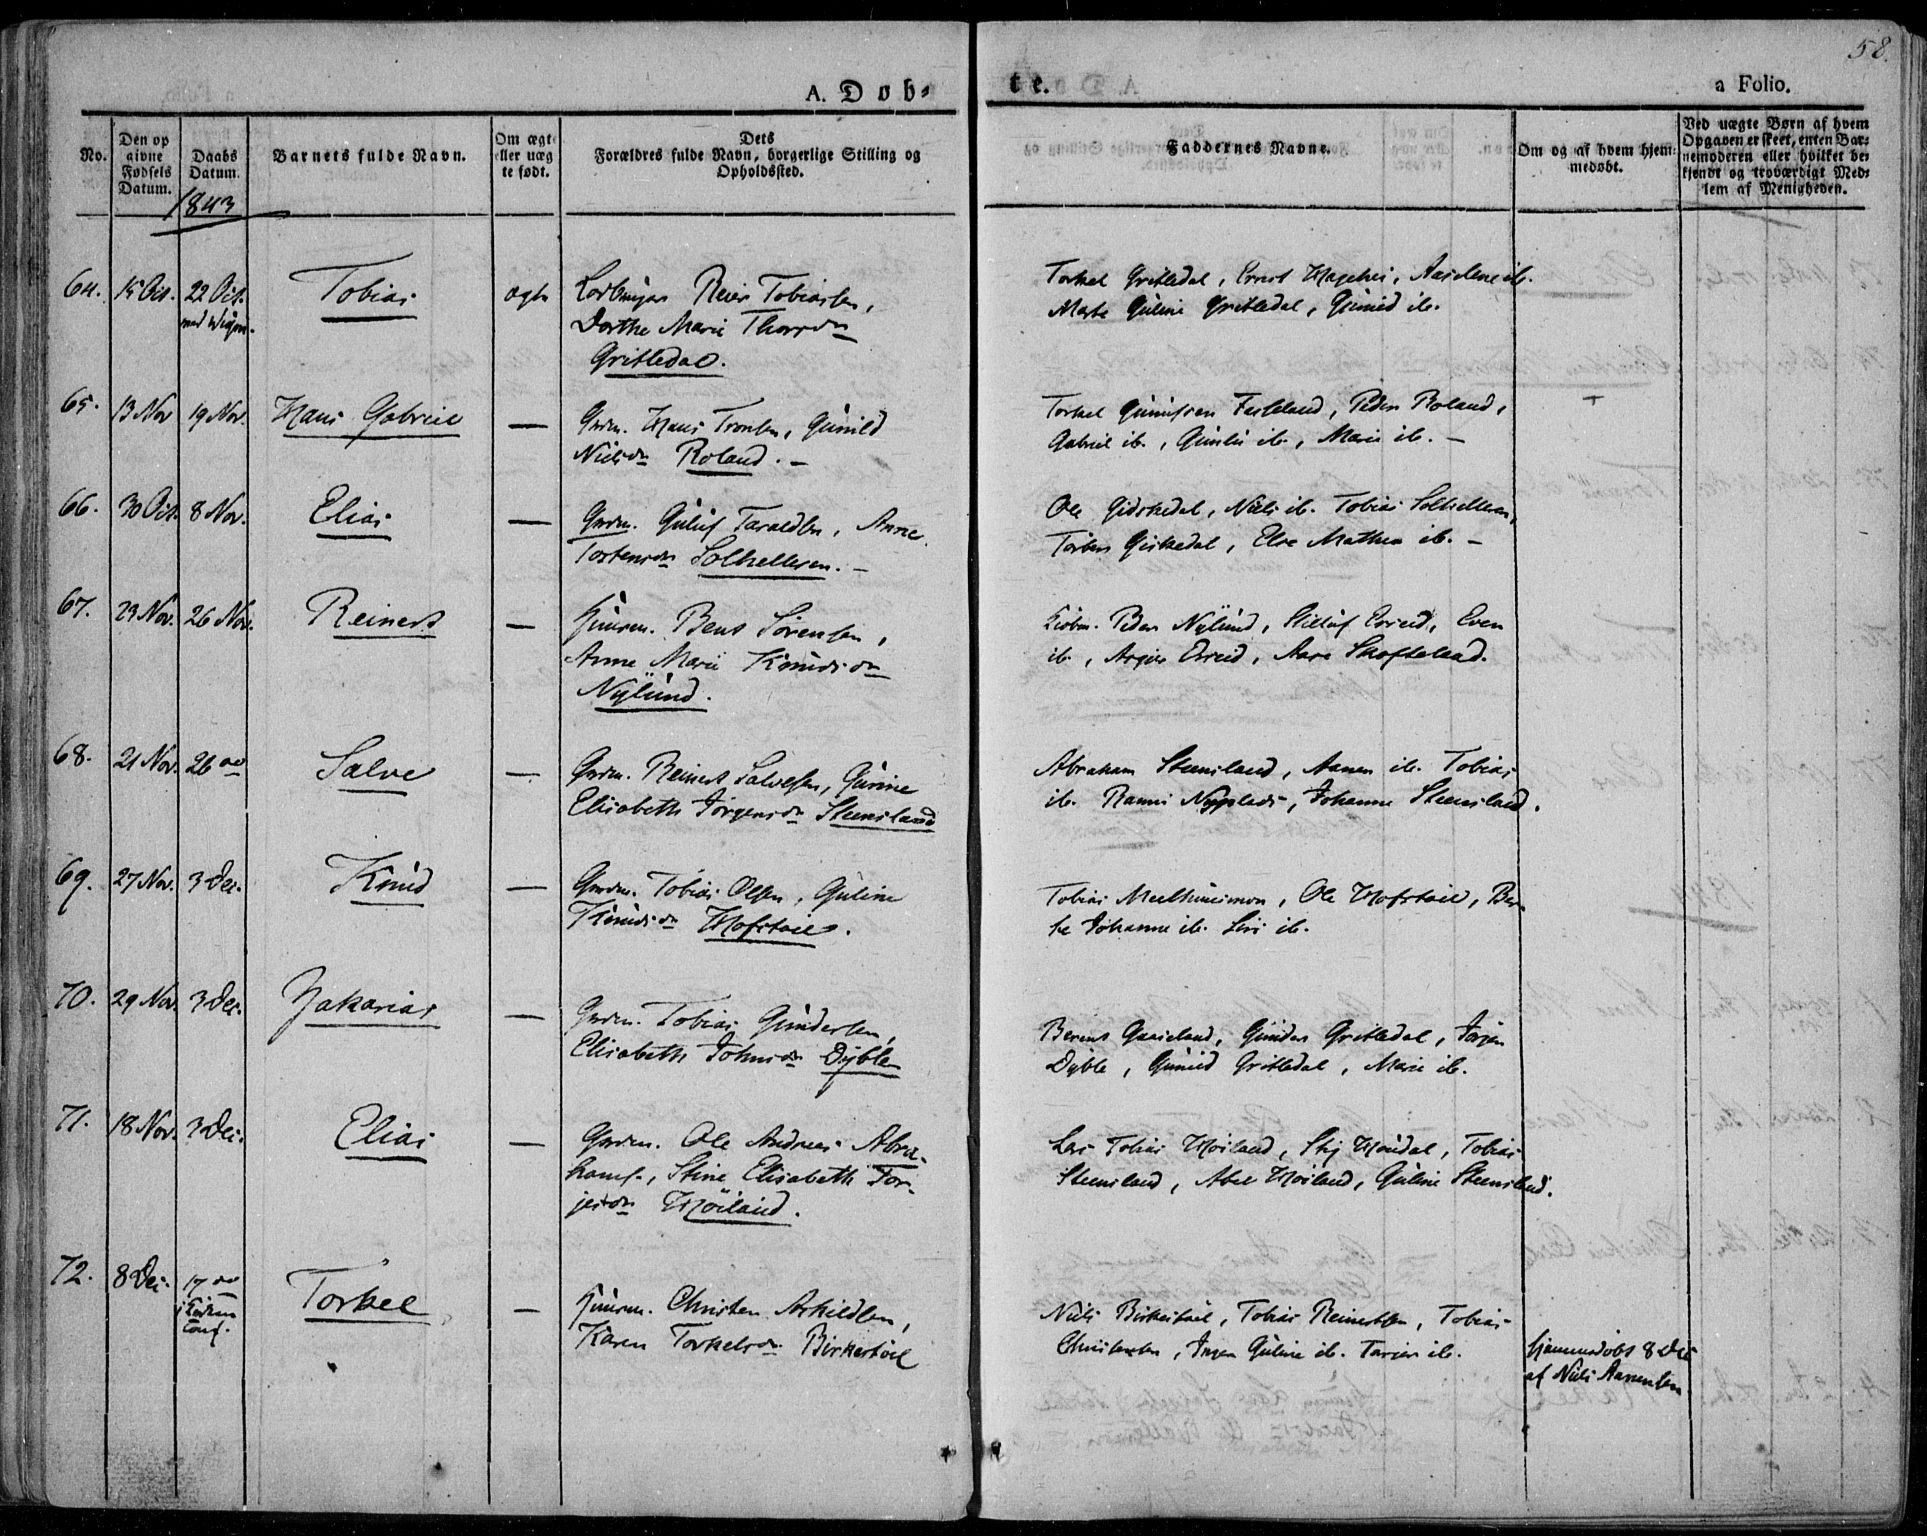 58.
A. Døb-
te.
a Folio.
No.
Den op
givne
Fødsels
Datum.
Daabs
Datum.
Barnets fulde Navn.
Om ægt
eller uæg
te født.
Dets
Forældres fulde Navn, borgerlige Stilling og
Opholdssted.
Faddernes Navne.
Om og af hvem hjem-
medøbt.
Ved uægte Børn af hvem
Opgaven er skeet, enten Bar-
nemoderen eller hvilket be-
kjendt og troværdigt Med-
lem af Menigheden.
1843
64. 15 Oct. 22 Oct. Tobias ægte Reier Tobiassen,
Dorthe Marie
Gritledal.
Torkel Gritledal, Aaselene ib.
Marte Guline Gritledal, Gunild ib.
65. 13 Nov 19 Nov. Hans Gabriel — Grdm. Hans Tronsen, Gunild
Nielsdr Roland. —
Torkel Peder Roland,
Gabriel ib., ib., Marie ib. —
66. 30 Oct. 8 Nov. Elias — Grdm. Guluf Taraldsen, Anne
Torstensdr Solhellesen. —
Ole Gidskedal, Niels ib. Tobias Solhellesen,
Torbør Giskedal, Else Mathea ib. —
67. 23 Nov. 26 Nov. Reinert — Huusm. Bent Sørensen,
Anne Marie Knudsdr
Nylund.
Peder Nylund, Even
ib., Aase Skofteland.
68. 21 Nov. 26 do Salve — Grdm. Reinert Salvesen, Gurine
Elisabeth Jørgensdr Steensland
Abraham Steensland, Aanen ib. Tobias
ib. Johanne Steensland.
69. 27 Nov. 3 Dec. Knud — Grdm. Tobias Olsen, Guline
Knudsdr Hofstøel.
Tobias Ole Hofstøel, Ber-
te Johanne ib. Siri ib.
70. 29 Nov. 3 Dec. Zakarias — Grdm. Tobias Gundersen,
Elisabeth Johnsdr Dyble
Berent Gunder Gritledal, Jørgen
Dyble, Gunild Gritledal, Marie ib.
71. 18 Nov. 3 Dec. Elias — Grdm. Ole Andreas Abra-
hams., Stine Elisabeth Tor-
jesdr Høiland.
Lars Tobias Høiland, Stij Tobias
Steensland, Abel Høiland, Guline Steensland.
72. 8 Dec. 17 do Torkel — Huusm. Christen Askildsen,
Karen Torkelsdr Birkestøel
Niels Birkestøel, Tobias Reinertsen, Tobias
Christensen, Inger Guline ib. Tarjer ib.
hjemmedøbt 8 Dec
af Niels Aanensen